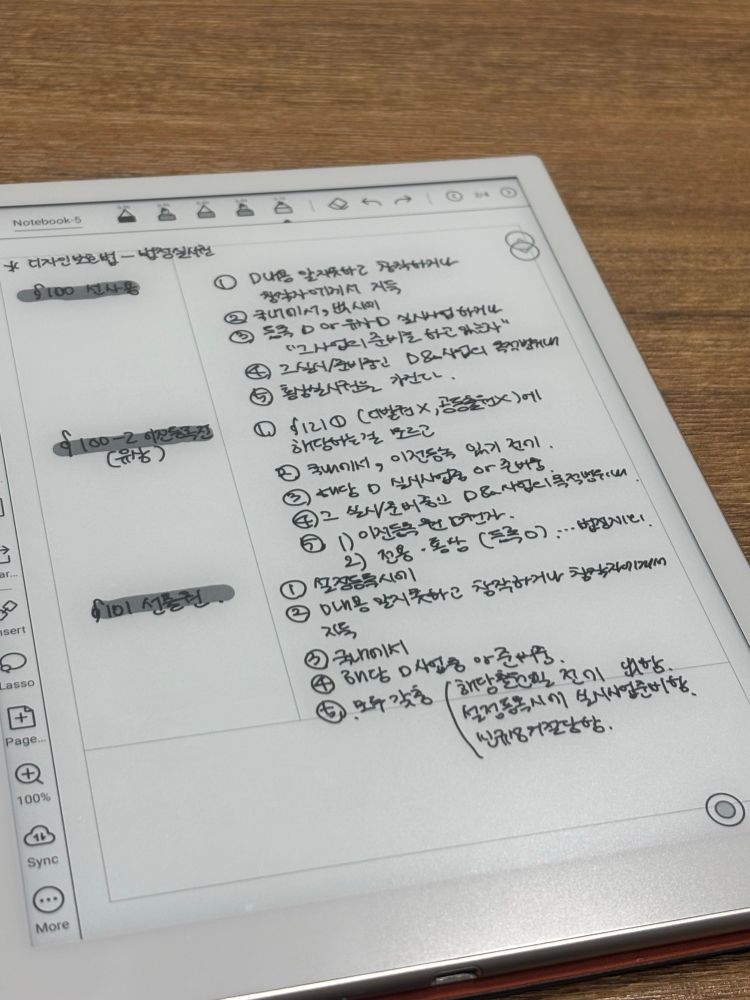 Notebook-5
2/4
* 디자인보호법 - 법정실시권
§100 선사용
① D내용 알지못하고 창작하거나
창작자에게서 지득
② 국내에서, 출원시에
③ 등록 D or 유사 D 실시사업하거나
"그사업의 준비를 하고 있는자"
④ 그 실시/준비중인 D & 사업의 목적범위내
⑤ 통상실시권을 가진다.
§100-2 이전등록전
(유상)
① §121① (디받권X, 공동출원X)에
해당하는걸 모르고
② 국내에서, 이전등록 있기 전에.
③ 해당 D 실시사업중 or 준비중
④ 그 실시/준비중인 D & 사업의 목적범위내.
⑤ 1) 이전등록 D권자.
2) 전용·통상 (등록O) ... 법정지위.
§101 선출원.
① 설정등록시에
② D내용 알지못하고 창작하거나 창작자에게서
지득
③ 국내에서
④ 해당 D 사업중 or 준비중.
⑤ 모두갖춤
해당출원일 전에
설정등록시에 실시사업준비함.
거절당함.
ar...
nsert
Lasso
Page...
100%
Sync
More